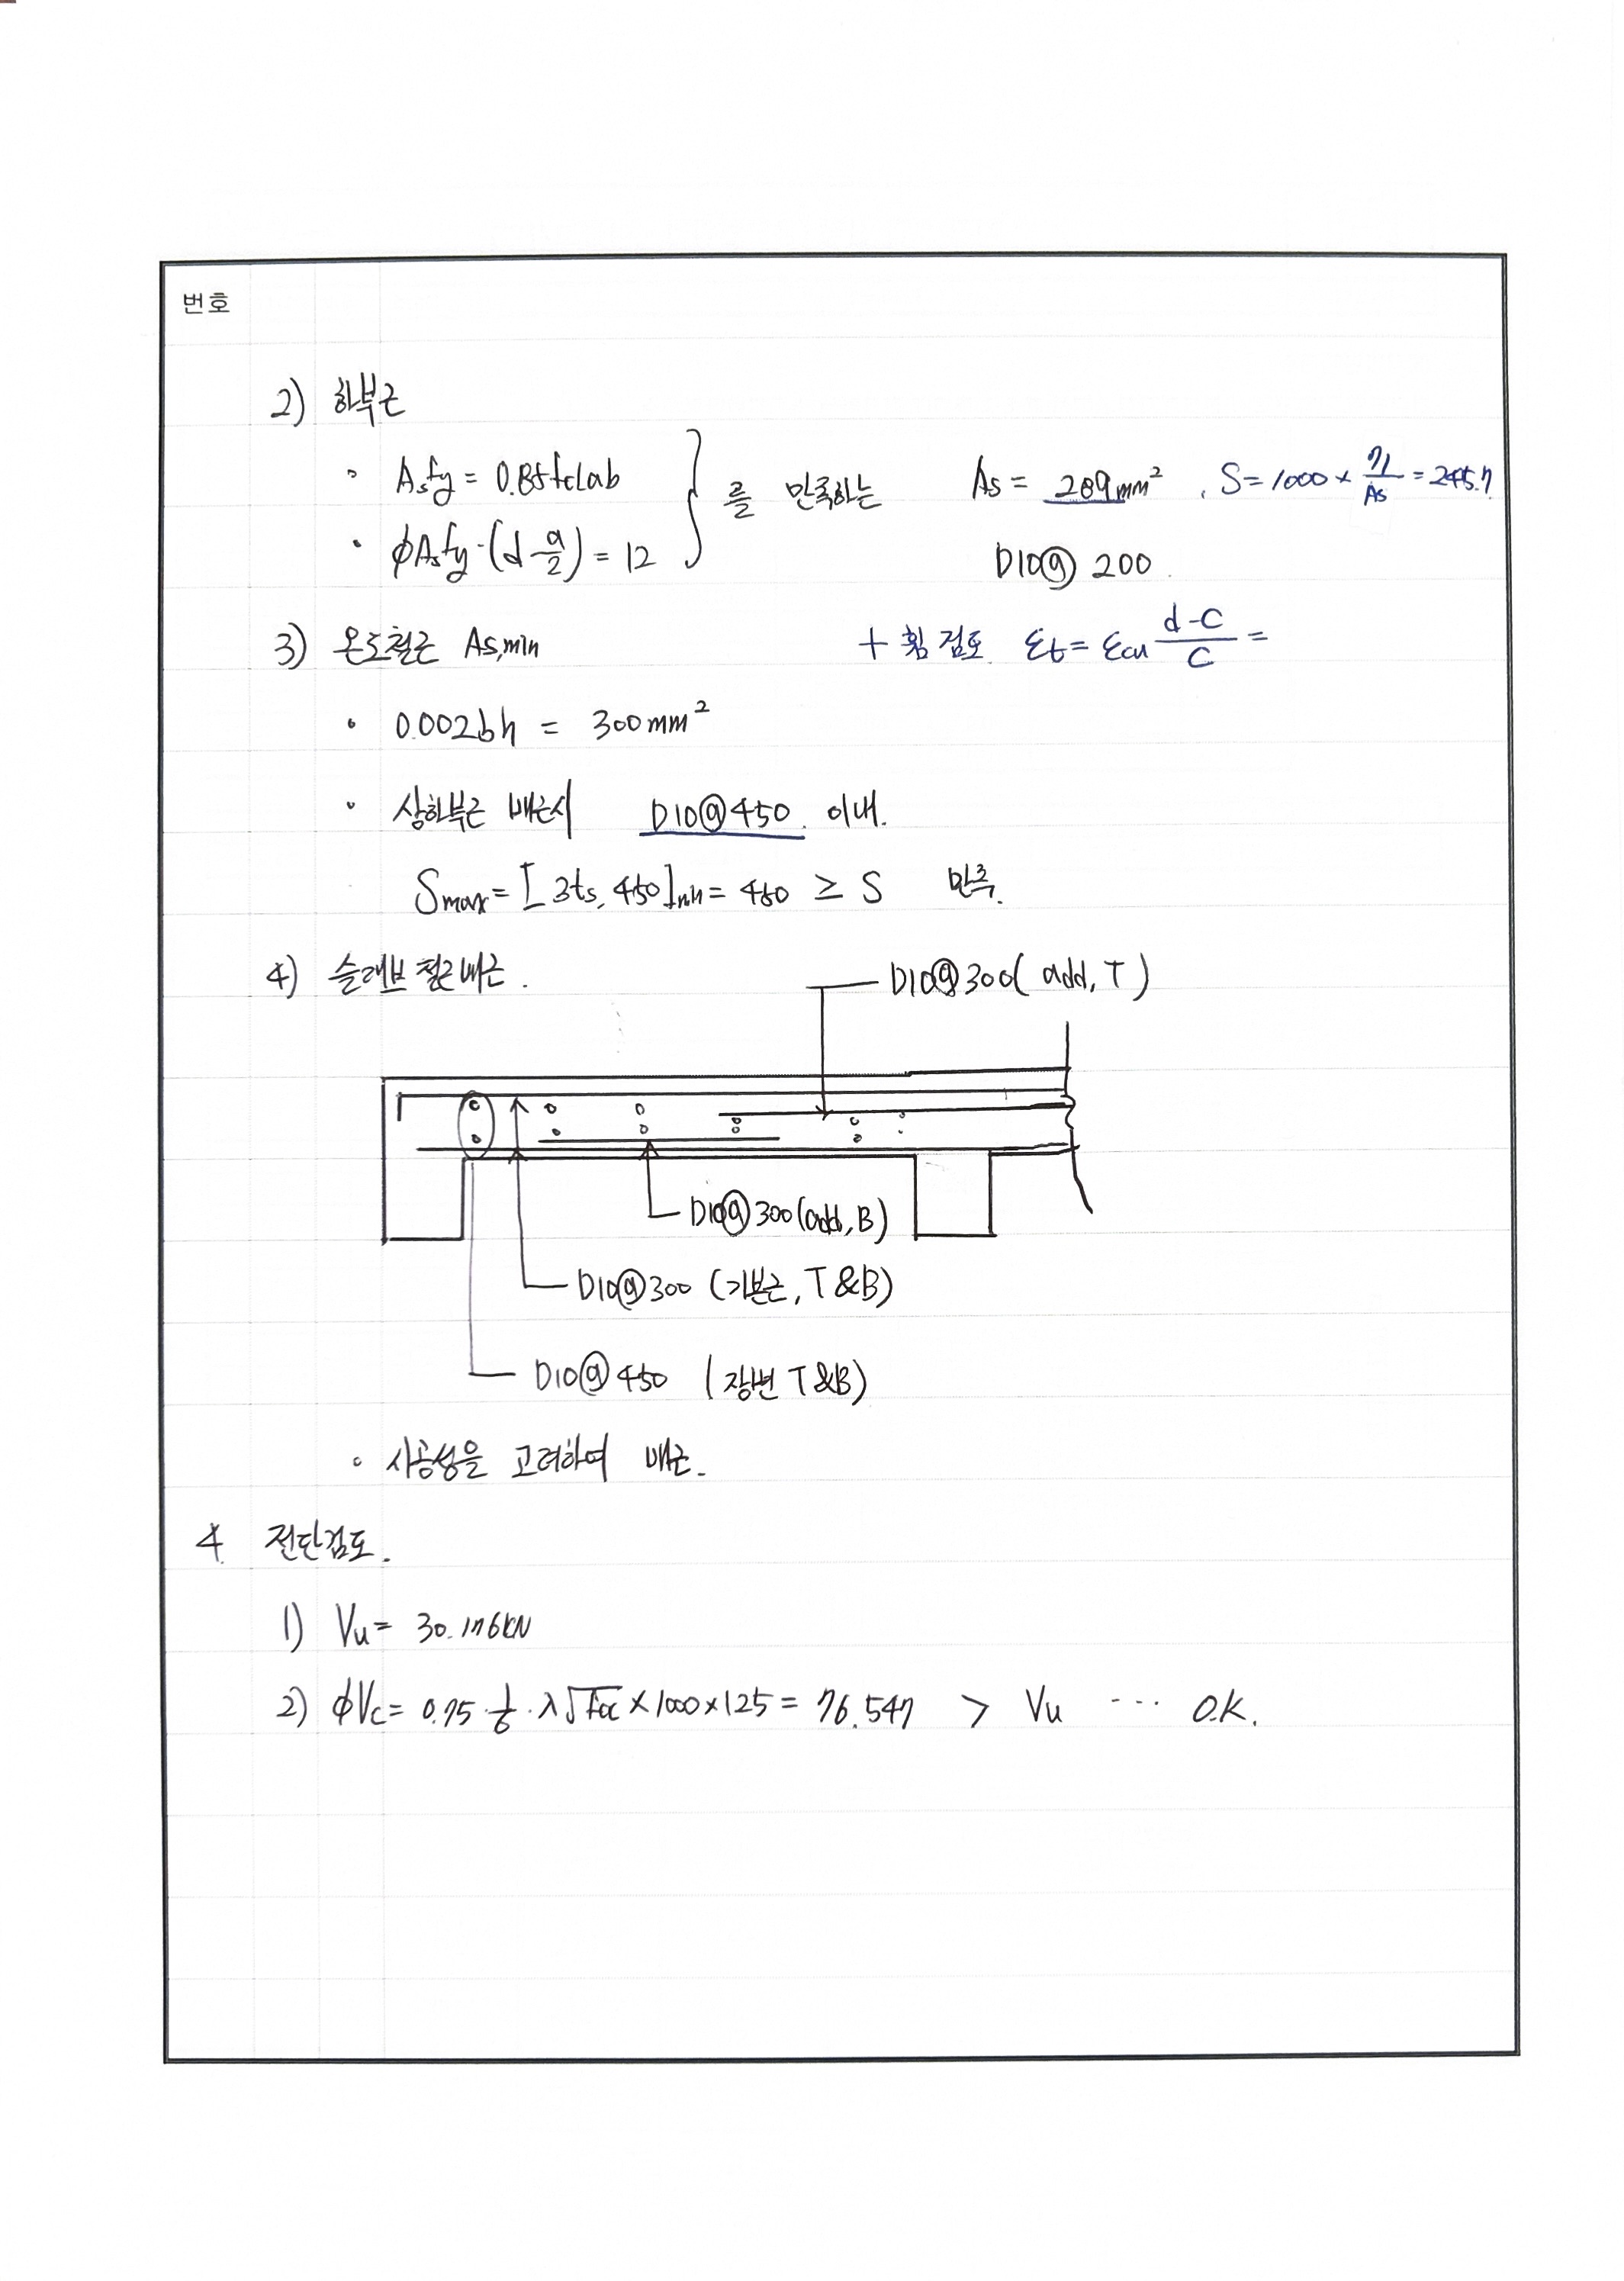 번호
2) 하부근
◦ Asfy = 0.85fckab
• ϕAsfy·(d-a/2) = 12
} 를 만족하는 As = 289mm² , S = 1000 × 71/As = 245.7
D10@ 200
3) 온도철근 As,min + 휨 검토. εt = εcu (d-c)/c =
• 0.002bh = 300mm²
• 상하부근 배근시 D10@450. 이내.
Smax = [3ts, 450]min = 450 ≥ S 만족.
4) 슬래브 철근배근.
D10@300( add, T )
D10@300(add, B)
D10@300 (기본근, T&B)
D10@450 (장변 T&B)
◦ 시공성을 고려하여 배근.
4. 전단검토.
1) Vu = 30.176kN
2) ϕVc = 0.75·1/6·λ√fck × 1000 × 125 = 76.547 > Vu ··· O.K.